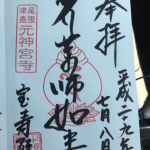 奉拝
平成二九年
七月八日
薬師如来
尾張
津島
元神宮寺
宝寿院